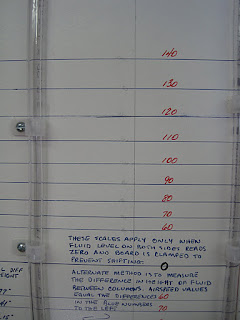 140
130
120
110
100
90
80
70
60
THESE SCALES APPLY ONLY WHEN
FLUID LEVEL ON BOTH SIDES READS
ZERO AND BOARD IS CLAMPED TO
PREVENT SHIFTING.
0
ALTERNATE METHOD IS TO MEASURE
THE DIFFERENCE IN HEIGHT OF FLUID
BETWEEN COLUMNS. AIRSPEED VALUES
EQUAL THE DIFFERENCES 60
IN THE BLUE NUMBERS
TO THE LEFT 70